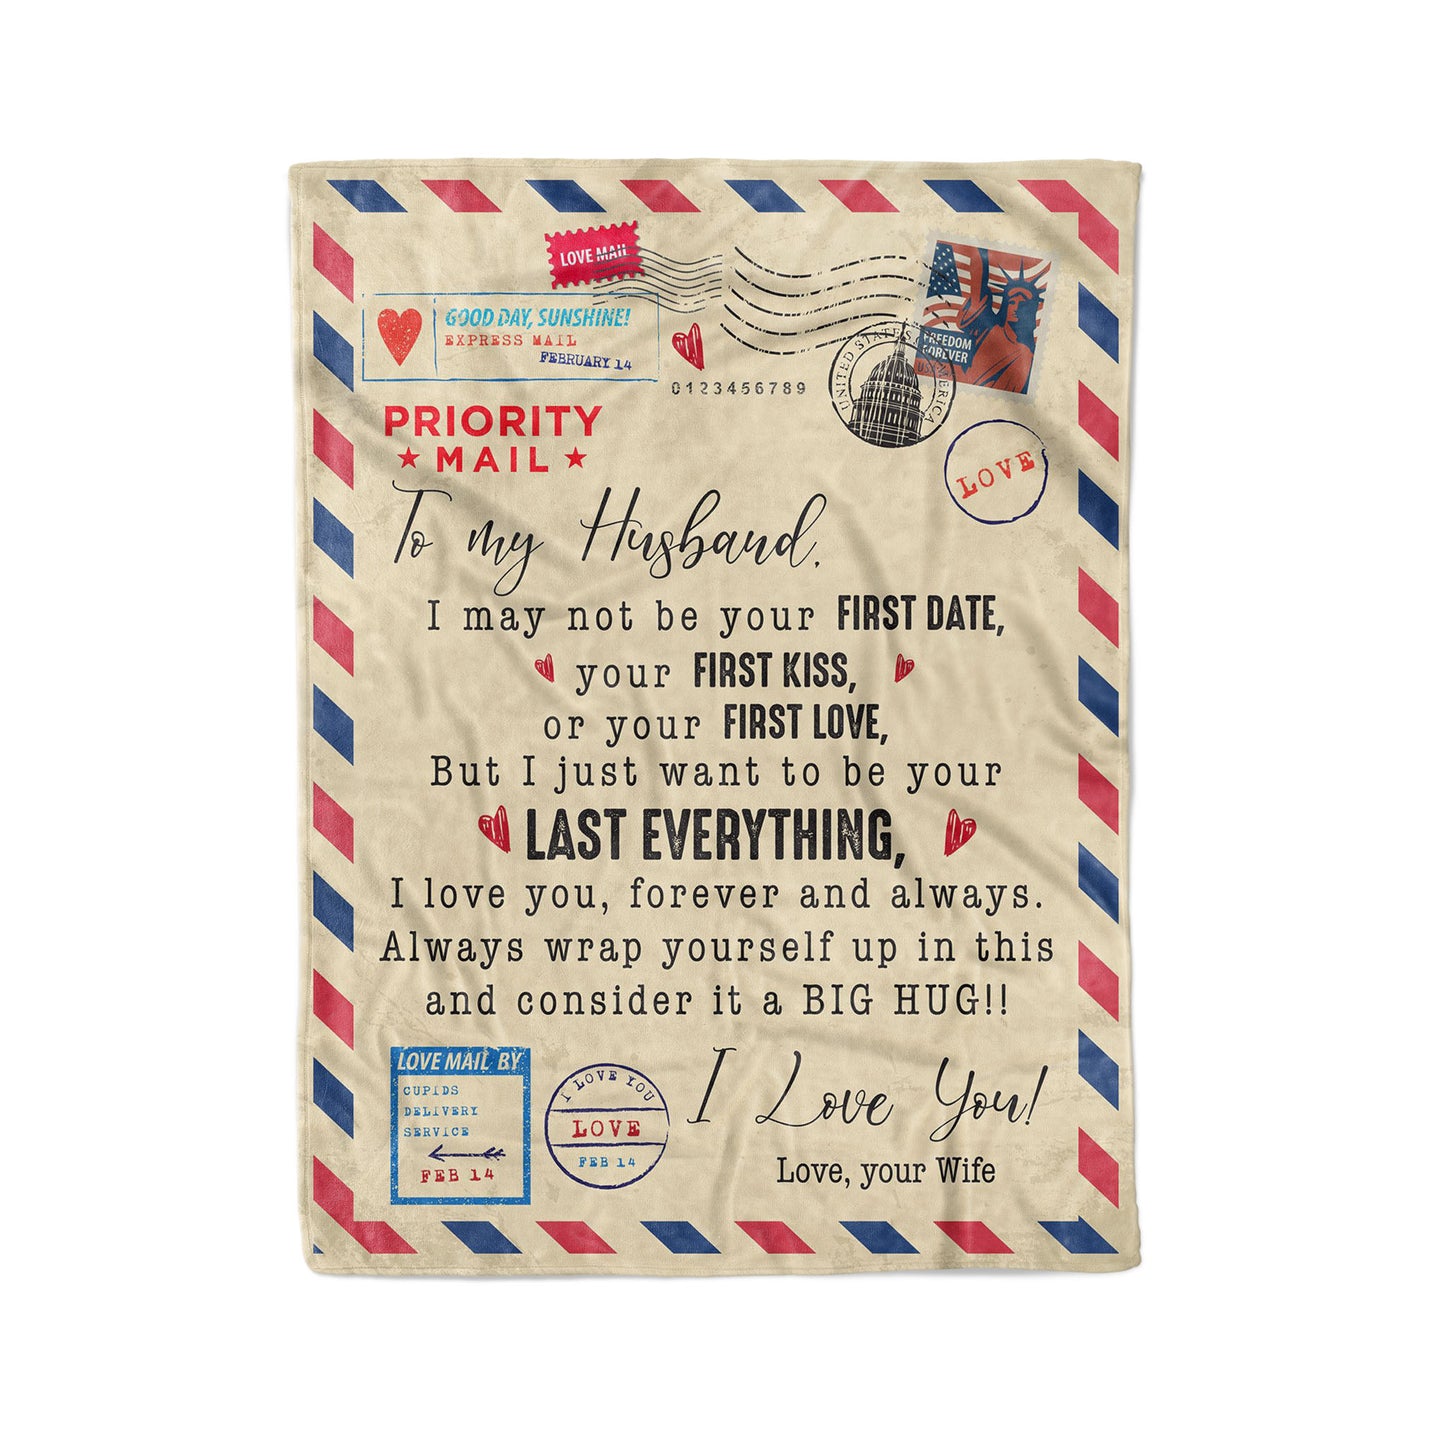 LOVE MAIL
GOOD DAY, SUNSHINE!
EXPRESS MAIL
FEBRUARY 14
0123456789
FREEDOM
FOREVER
USA
UNITED STATES OF AMERICA
LOVE
PRIORITY
MAIL
To my Husband,
I may not be your FIRST DATE,
your FIRST KISS,
or your FIRST LOVE,
But I just want to be your
LAST EVERYTHING,
I love you, forever and always.
Always wrap yourself up in this
and consider it a BIG HUG!!
LOVE MAIL BY
CUPIDS
DELIVERY
SERVICE
FEB 14
I LOVE YOU
LOVE
FEB 14
I Love You!
Love, your Wife